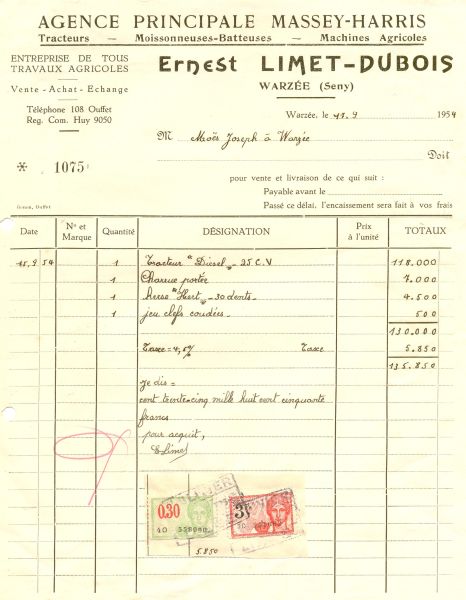 AGENCE PRINCIPALE MASSEY-HARRIS
Tracteurs — Moissonneuses-Batteuses — Machines Agricoles
ENTREPRISE DE TOUS
TRAVAUX AGRICOLES
Vente - Achat - Echange
Téléphone 108 Ouffet
Reg. Com. Huy 9050
Ernest LIMET-DUBOIS
WARZÉE (Seny)
Warzée, le 15.9 1954
M Moës Joseph à Warzée
Doit
* 1075
pour vente et livraison de ce qui suit :
Payable avant le
Passé ce délai, l'encaissement sera fait à vos frais
Ouffet
Date N° et Marque Quantité DÉSIGNATION Prix à l'unité TOTAUX
15.9.54 1 Tracteur "Diesel" - 25 C.V 118.000
1 Charrue portée 7.000
1 herse "Hert" - 30 dents - 4.500
1 jeu clefs coudées - 500
130.000
Taxe = 4,5% Taxe 5.850
135.850
je dis =
cent trente-cinq mille huit cent cinquante
francs
pour acquit,
ELimet
0.30 3F
40 558060
5.850